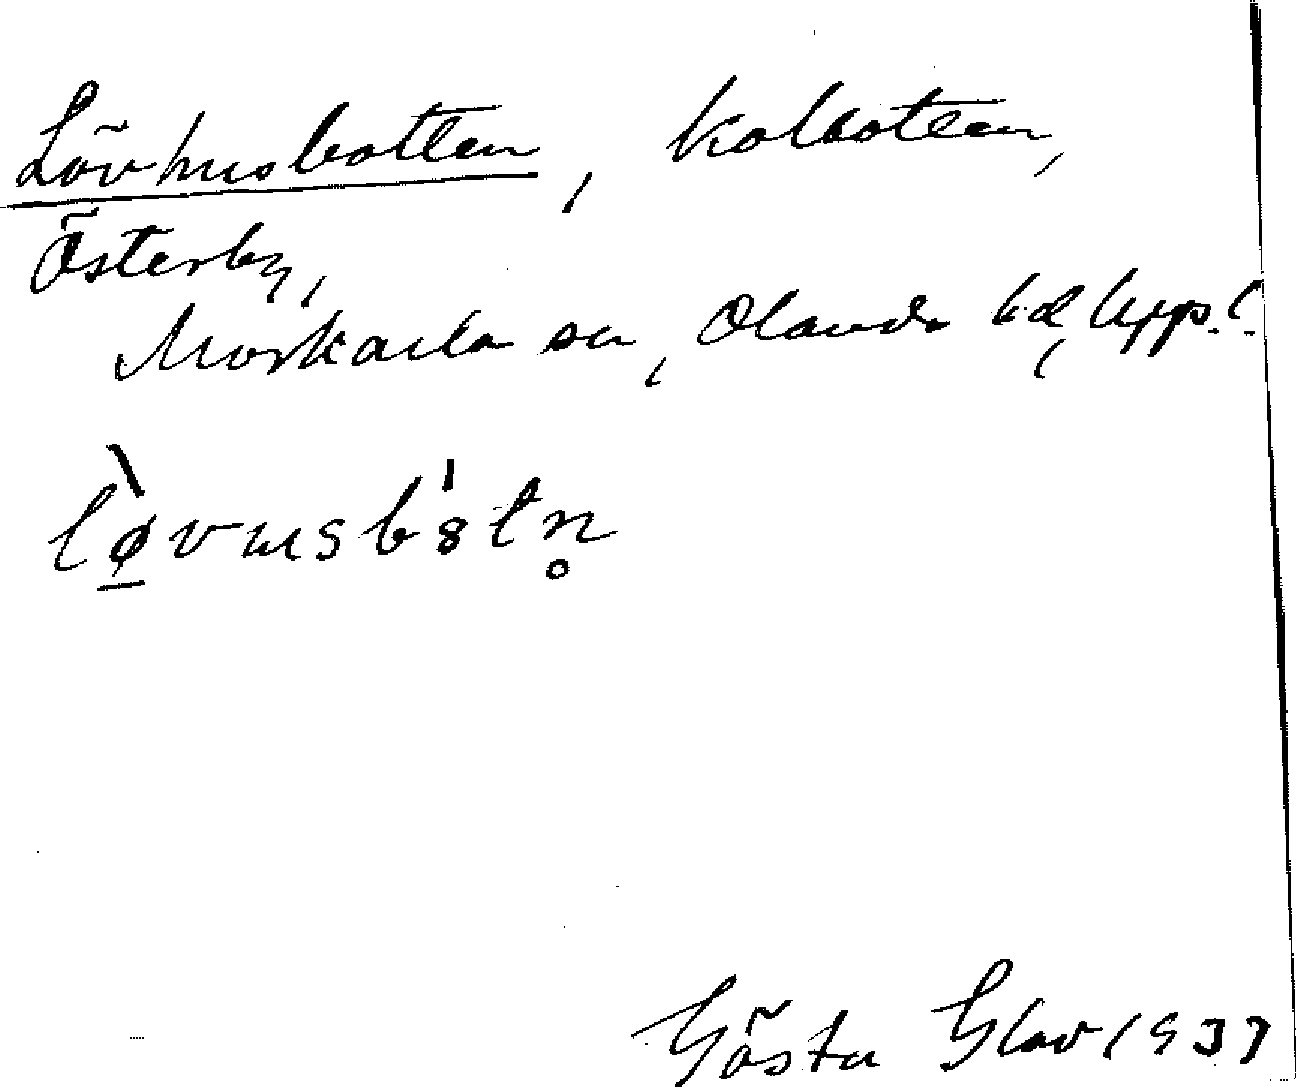 Lövhusbotten, kolbotten,
Österby,
Morkarla sn, Olands hd, Uppl.
lø̲̀vusb8́tn̥
Gösta Glav 1937